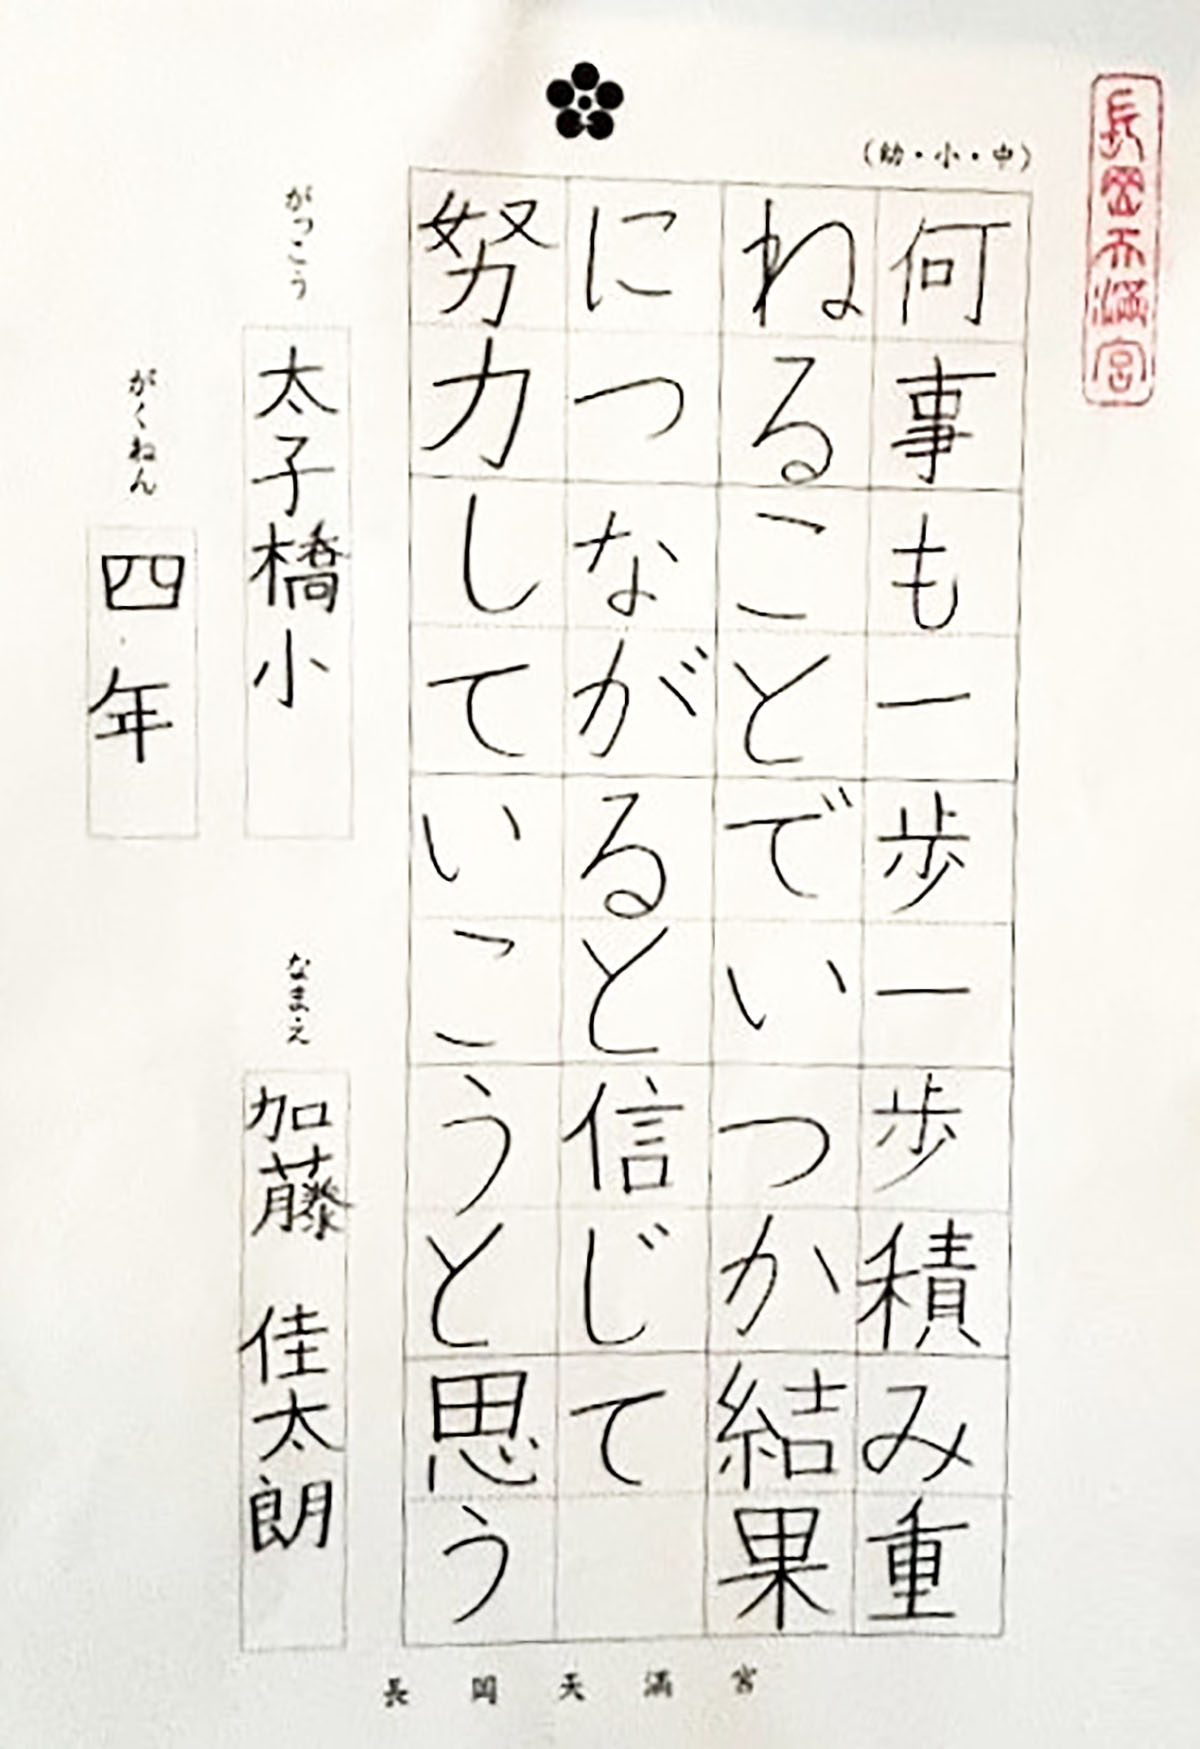 長岡天満宮
(幼・小・中)
何事も一歩一歩積み重
ねることでいつか結果
につながると信じて
努力していこうと思う
がっこう
太子橋小
がくねん
四年
なまえ
加藤 佳太朗
長岡天満宮